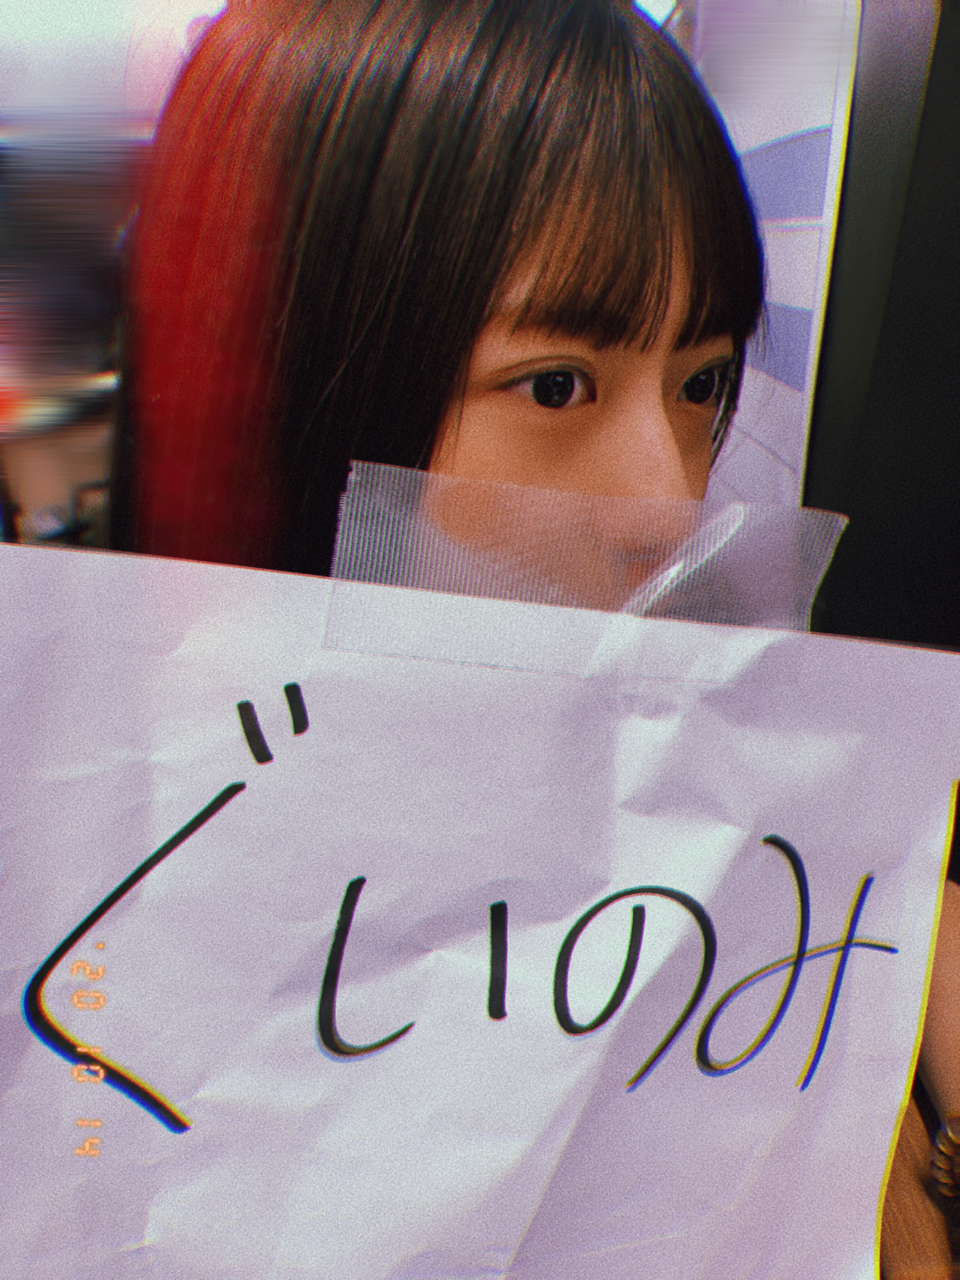 ぐいのみ
'20 10 14